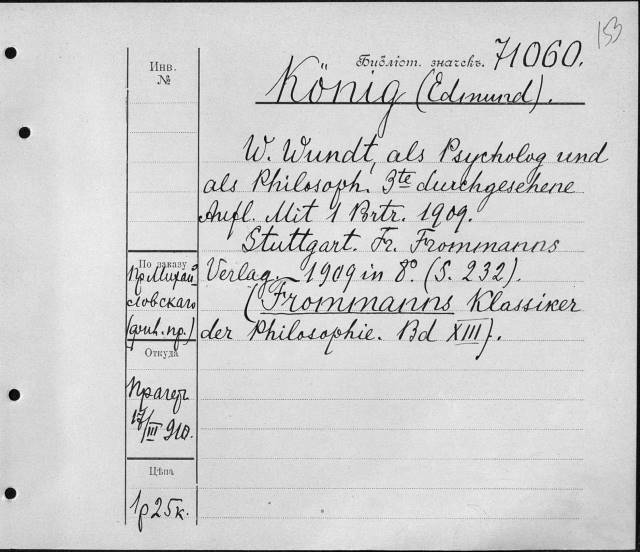 153
Библіот. значекъ. 71060.
Инв.
№
König (Edmund).
W. Wundt, als Psycholog und
als Philosoph. 3te durchgesehene
Aufl. Mit 1 Brtr. 1909.
Stuttgart. Fr. Frommanns
Verlag. 1909 in 8°. (S. 232).
(Frommanns Klassiker
der Philosophie. Bd XIII).
По заказу
пр. Михай
ловскаго
Откуда
Прагеръ
17/III 910.
Цѣна
1р 25к.